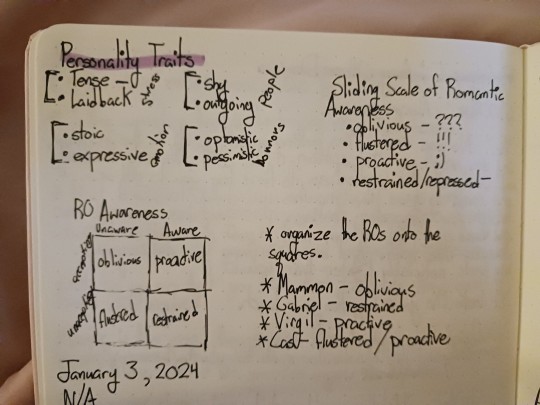 Personality Traits
• Tense —
• Laidback
stress
• shy
• outgoing
people
• stoic
• expressive
emotion
• optomistic
• pessimistic
Sliding Scale of Romantic
Awareness
• oblivious - ???
• flustered - !!!
• proactive - ;)
• restrained/repressed-
RO Awareness
Unaware
Aware
oblivious
proactive
flustered
restrained
* organize the ROs onto the
squares.
* Mammon - oblivious
* Gabriel - restrained
* Virgil - proactive
* Cast - flustered / proactive
January 3, 2024
N/A